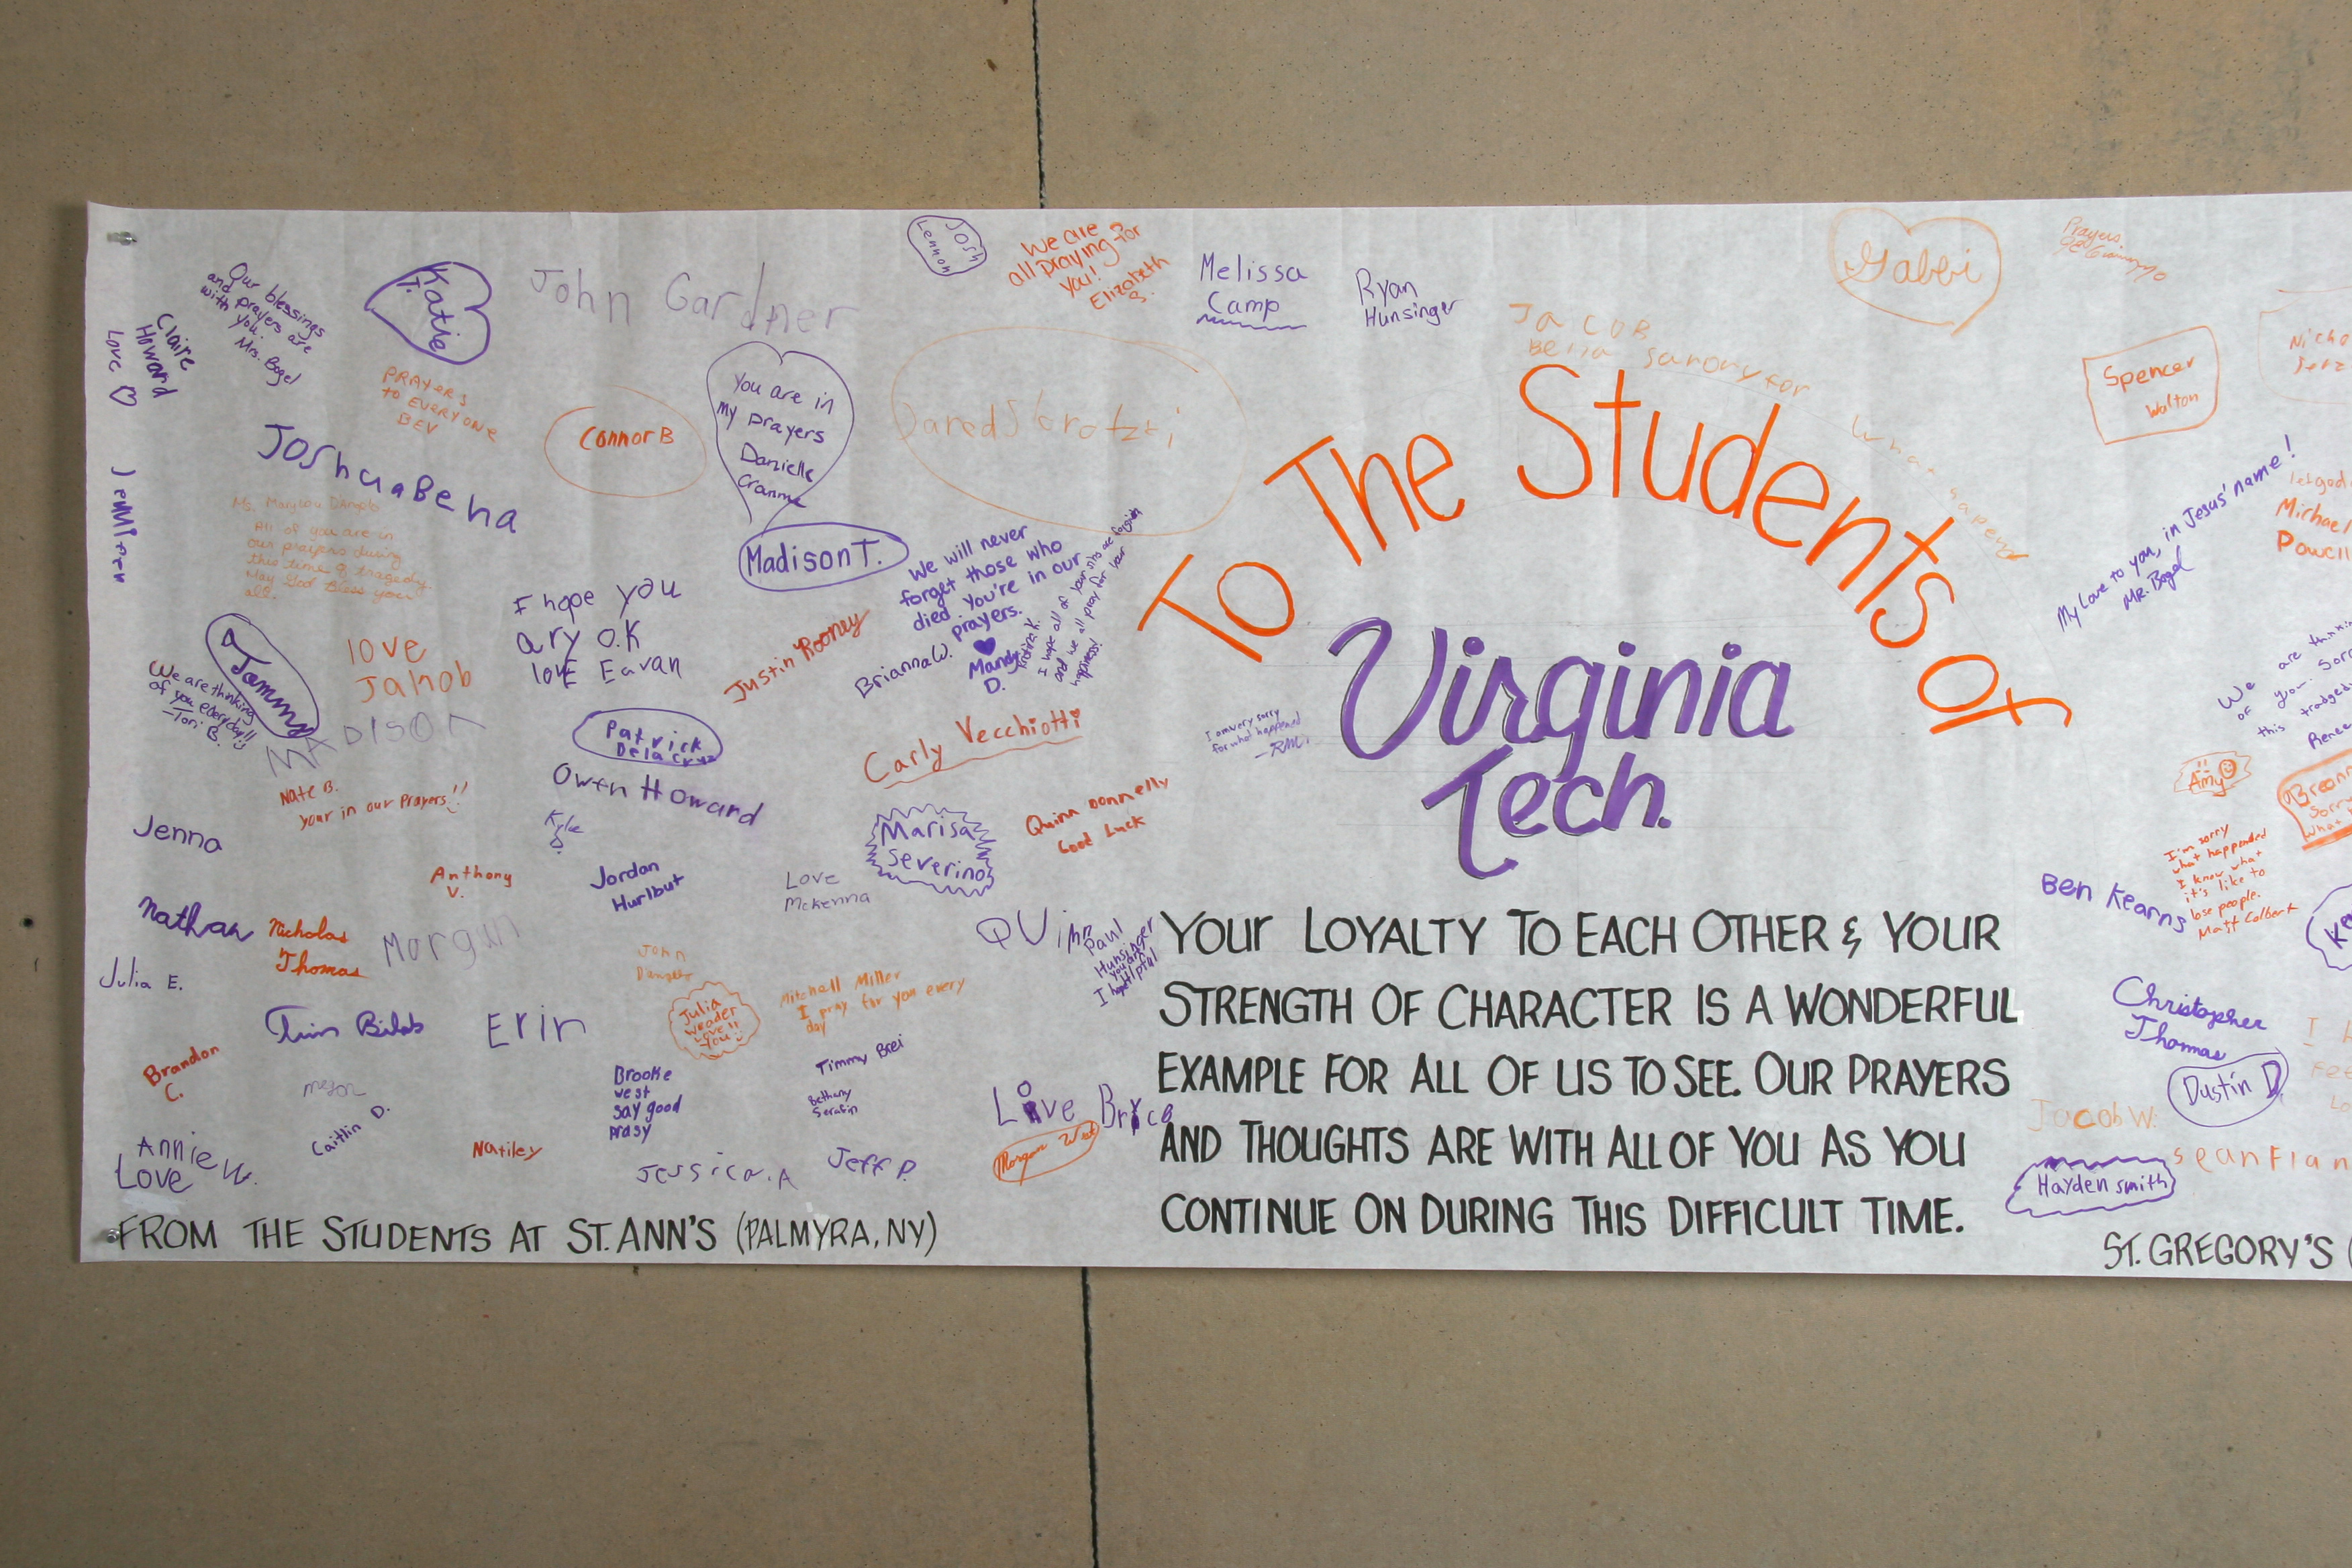 Our blessings
and prayers are
with you.
Mrs. Bogel
Claire
Howard
Love
Katie
T.
John Gardner
Josh
Lennon
We are
all praying for
you!
Elizabeth
B.
Melissa
Camp
Ryan
Hunsinger
Gabbi
Prayers
PRAYERS
to EVERYONE
BEV
Connor B
You are in
my prayers
Danielle
Cranme
JACOB
Bella sarory for
what
Spencer
Walton
JOShuaBeha
Jennifer
All of you are in
our prayers during
this time of tragedy.
May God Bless you
all.
Madison T.
We will never
forget those who
died. You're in our
prayers.
Mandy
D.
I hope all of your
and we all pray for your
happiness!
I hope you
ary O.K
lovE Eavan
Justin Rooney
Brianna W.
a
Tommy
We are thinking
of you everyday!!
-Tori B.
love
Jakob
MADISON
Patrick
Dela cruz
Owen Howard
Carly Vecchiotti
I am very sorry
for what happened
-RM
To The Students of
Virginia
Tech.
My Love to you, in Jesus' name!
MR. Bogel
Michael
Powell
We are thinki
of you. Sorr
this tradged
Renee
Nate B.
your in our Prayers!!
Kyle
Jenna
Marisa
Severino
Quinn Donnelly
Good Luck
Amy
Breann
Sorry
what
I'm sorry
what happended
I know what
it's like to
lose people.
Matt Colbert
Ben Kearns
Anthony
V.
Jordan
Hurlbut
Love
Mckenna
Nathan
Nicholas
Thomas
Morgan
QUinn
Paul
Hunsinger
Julia E.
John
Mitchell Miller
I pray for you every
day
Julia
weader
Love
You!!
Erin
Timmy Brei
Brandon
C.
megan
Caitlin D.
Brooke
west
say good
prasy
Bethany
Serafin
Love Bryce
Morgan West
Annie W.
Love
Natiley
Jessica.A
Jeff P.
Christopher
Thomas
Dustin D.
Jacob W.
sean Flan
Hayden smith
YOUr LOYALTY TO EACH OTHER & YOUR
STRENGTH OF CHARACTER IS A WONDERFUL
EXAMPLE FOR ALL OF US TO SEE. OUR PRAYERS
AND THOUGHTS ARE WITH ALL OF YOU AS YOU
CONTINUE ON DURING THIS DIFFICULT TIME.
FROM THE STUDENTS AT ST. ANN'S (PALMYRA, NY)
ST. GREGORY'S (